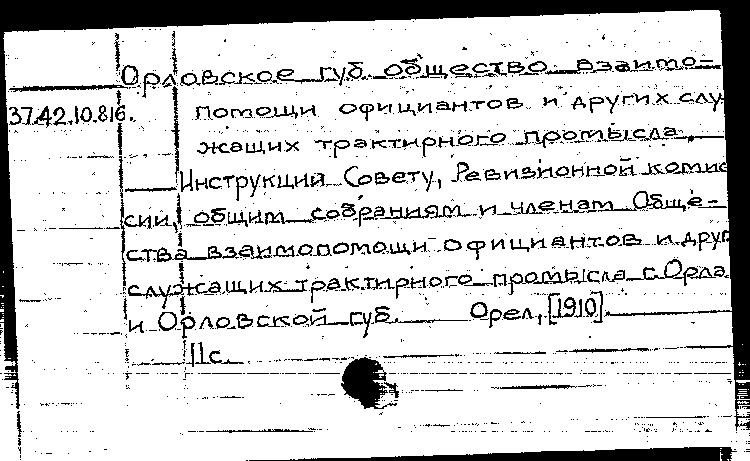 Орловское губ. общество взаимо-
37.42.10.816.
помощи официантов и других слу-
жащих трактирного промысла.
Инструкций Совету, Ревизионной комис
сии, общим собраниям и членам Обще-
ства взаимопомощи официантов и друг
служащих трактирного промысла г. Орла
и Орловской губ. Орел, [1910].
11с.